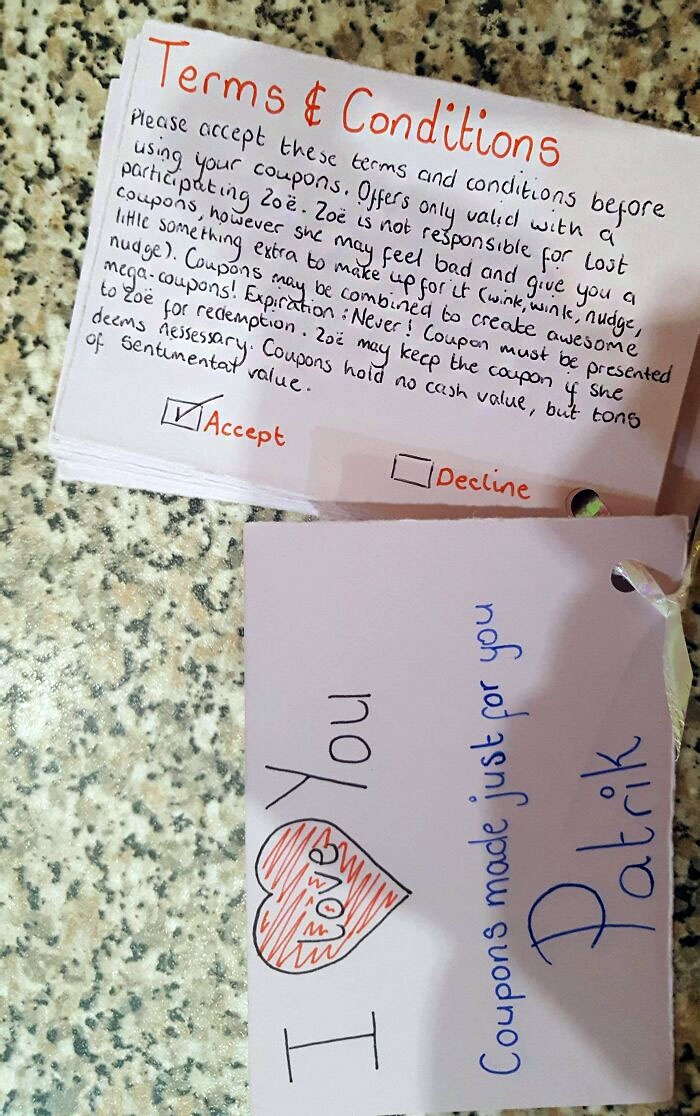 Terms & Conditions
Please accept these terms and conditions before
using your coupons. Offers only valid with a
participating Zoë. Zoë is not responsible for lost
coupons, however she may feel bad and give you a
little something extra to make up for it (wink, wink, nudge,
nudge). Coupons may be combined to create awesome
mega-coupons! Expiration: Never! Coupon must be presented
to Zoë for redemption. Zoë may keep the coupon if she
deems nessessary. Coupons hold no cash value, but tons
of sentimental value.
Accept
Decline
I Love You
Coupons made just for you
Patrik